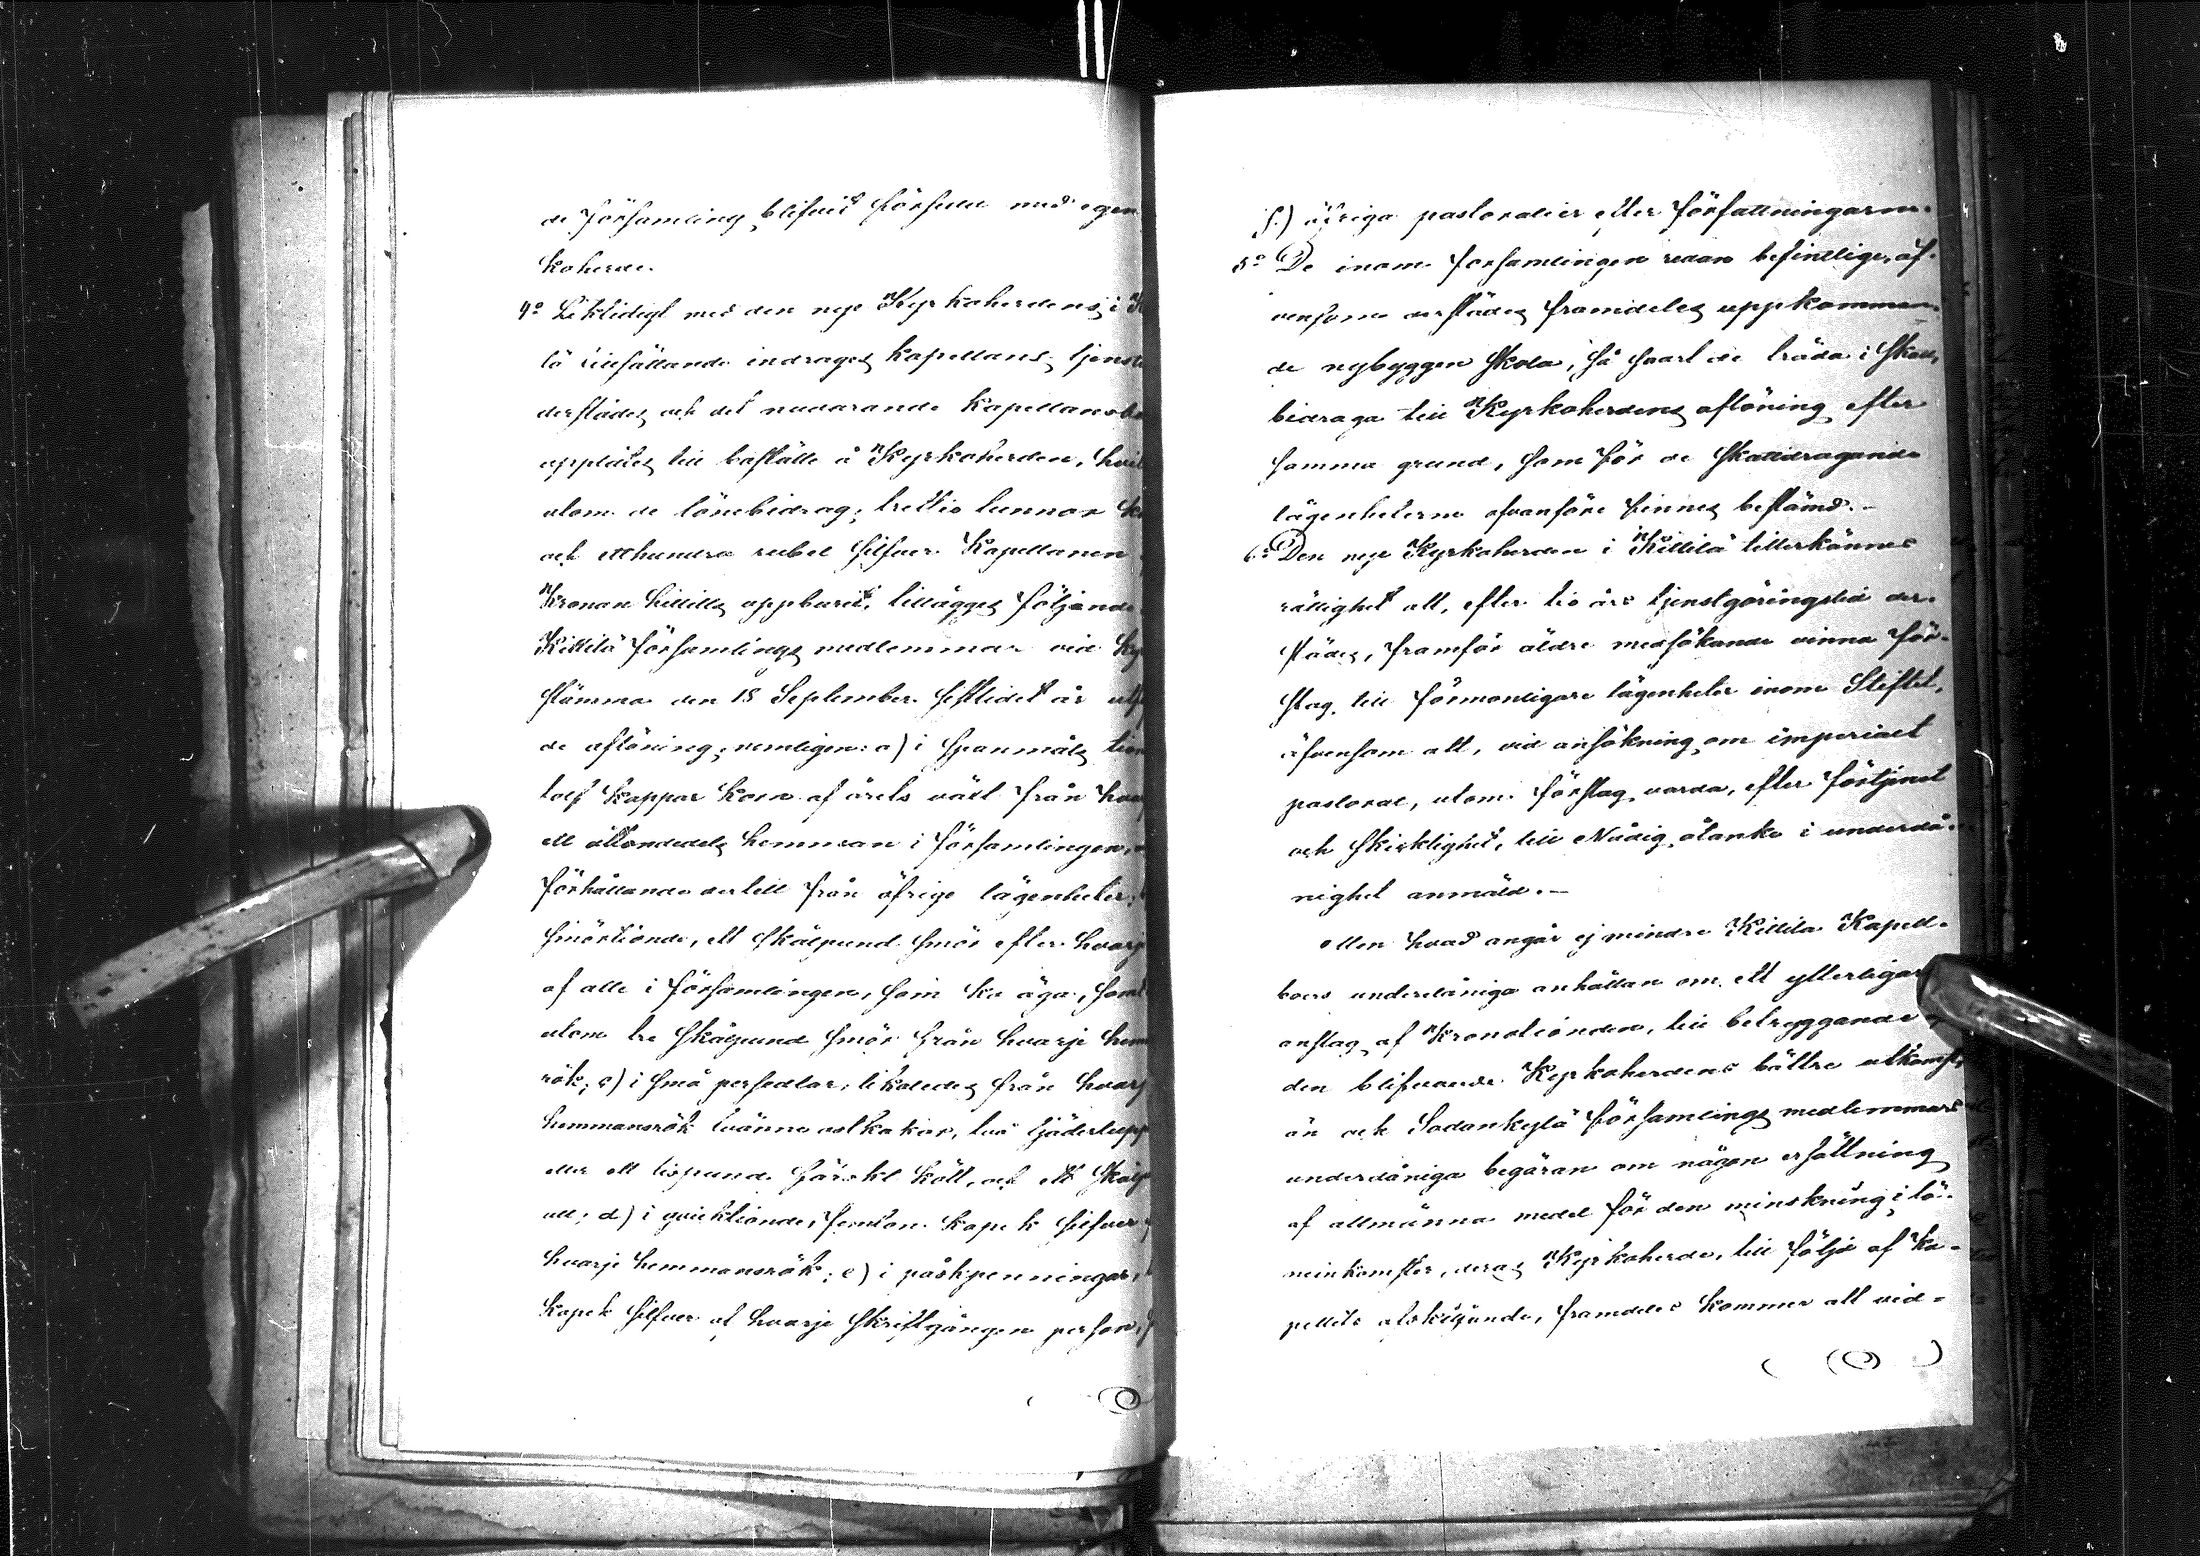 de församling blifvit försedd med egen
koherde.
4o Liktidigt med den nye Kyrkoherdens i K
lä tillsättande indrages kapellans tjenst
derstädes och det nuvarande Kapellansbo
upplåtes till boställe å Kyrkoherden, hvil
utom de lönebidrag; trettio tunnor
och etthundra rubel silfver Kapellanen
Kronan hittills uppburit, tillägges följande
Kittilä församlings medlemmar vid Ky
stämma den 18 September sistlidet år utf
de aflöning; nemligen: a) i spanmåls tion
tolf kappar korn af årets växt från hva
ett åttondedels hemman i församlingen,
förhållande dertill från öfrige lägenheter;
smörtionde, ett skålpund smör efter hvarj
af alla i församlingen, som ko äga, samt
utom tre skålpund smör från hvarje hem
rök; c) i små persedlar, likaledes från hvarj
hemmansrök tvänne ostkakor, två tjäderlupp
eller ett lispund färskt kött, och ett skålp
ull; d) i qvicktionde, femton kopek silfver
hvarje hemmansrök; e) i påskpenningar,
kopek silfver af hvarje skriftgången person,
f.) öfriga pastoralier efter författningarne.
5o De inom församlingen redan befintlige, äf-
vensom derstädes framdeles uppkomman-
de nybyggen skola, så snart de träda i skatt,
bidraga till Kyrkoherdens aflöning efter
samma grund, som för de skattdragande
lägenheterne ofvanföre finnes bestämd.-
6.o Den nye Kyrkoherden i Kittilä tillerkännes
rättighet att, efter tio års tjenstgöringstid der-
städes, framför äldre medsökande vinna för-
slag till förmonligare lägenheter inom Stiftet,
äfvensom att, vid ansökning om imperielt
pastorat, utom förslag varda, efter förtjenst
och skicklighet, till Nådig åtanke i underdå-
nighet anmäld.-
Men hvad angår ej mindre Kittilä Kapell-
boers underdåniga anhållan om ett ytterligar
anslag af Kronotionden, till betryggande
den blifvande Kyrkoherdens bättre utkomst,
än och Sodankylä församlings medlemmars
underdåniga begäran om någon ersättning
af allmänna medel för den minskning i lö-
neinkomster, deras Kyrkoherde, till följe af Ka-
pellets afskiljande, framdeles kommer att vid-